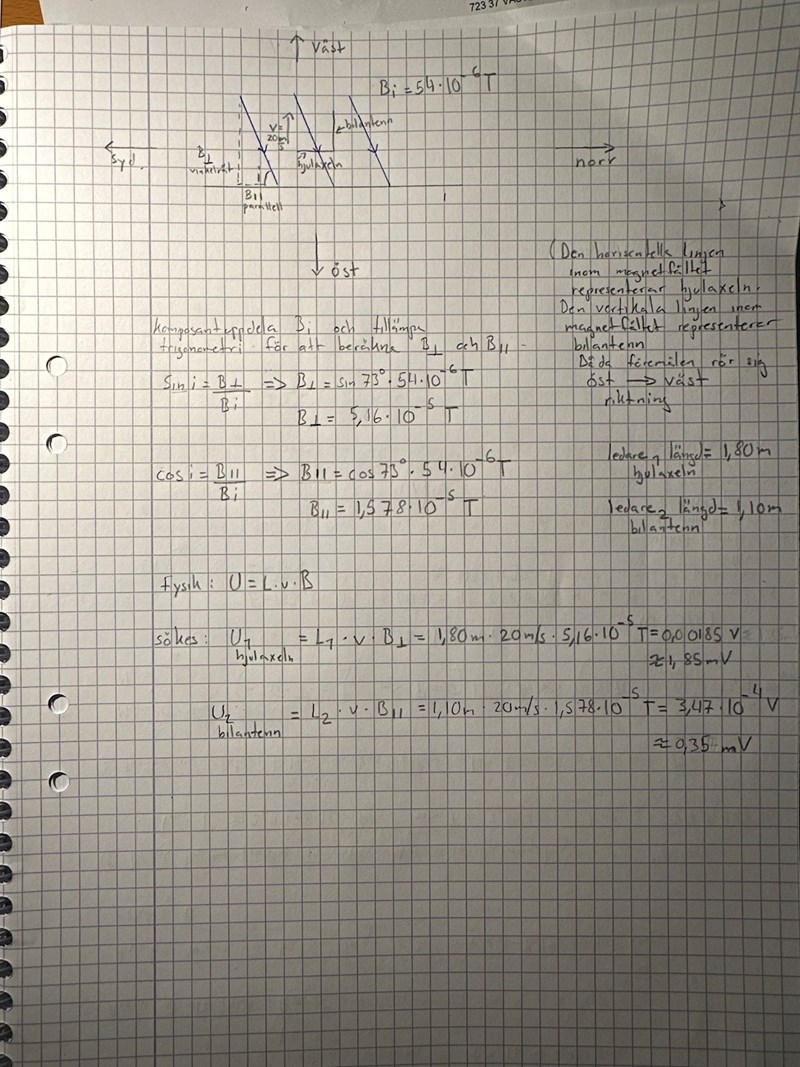 723 37
Väst
Bi = 54·10⁻⁶ T
v=
20m/s
bilantenn
Syd.
B⊥
vinkelrät
hjulaxeln
norr
i
B||
parallell
öst
(Den horisentella linjen
inom magnetfältet
representerar hjulaxeln.
Den vertikala linjen inom
magnetfältet representerar
bilantenn
Båda föremålen rör sig
öst → väst
riktning
Komposantuppdela Bi och tillämpa
trigonometri för att beräkna B⊥ och B||.
Sin i = B⊥/Bi => B⊥ = sin 73°·54·10⁻⁶ T
B⊥ = 5,16·10⁻⁵ T
cos i = B||/Bi => B|| = cos 73°·54·10⁻⁶ T
B|| = 1,578·10⁻⁵ T
ledare₁ längd = 1,80 m
hjulaxeln
ledare₂ längd = 1,10 m
bilantenn
fysik: U = L·v·B
sökes: U₁ = L₁·v·B⊥ = 1,80 m·20 m/s·5,16·10⁻⁵ T = 0,00185 V
hjulaxeln
≈ 1,85 mV
U₂ = L₂·v·B|| = 1,10m·20 m/s·1,578·10⁻⁵ T = 3,47·10⁻⁴ V
bilantenn
≈ 0,35 mV